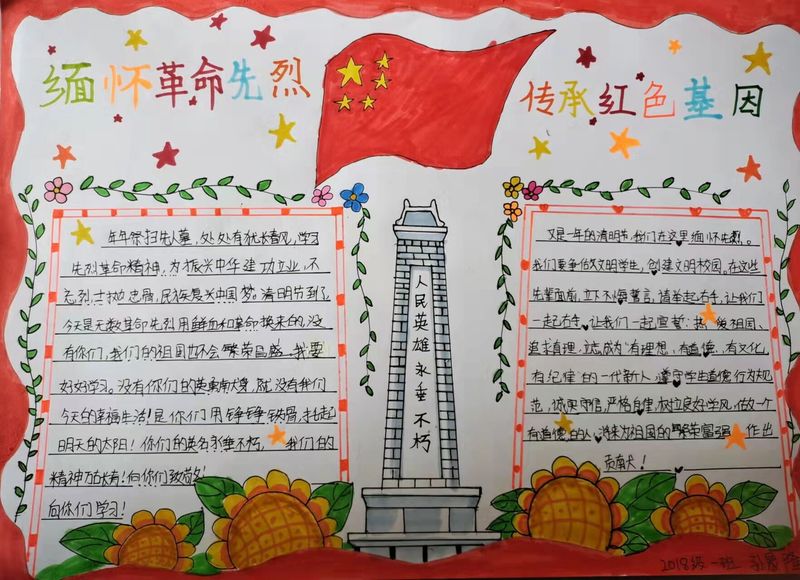 缅怀革命先烈
传承红色基因
年年祭扫先人墓,处处有犹长春风,学习
先烈革命精神,为振兴中华建功立业,不
忘烈士抛忠骨,民族复兴中国梦。清明节到了,
今天是无数革命先烈用鲜血和革命换来的,没
有你们,我们的祖国也不会繁荣昌盛.我要
好好学习。没有你们的英勇南大寺,就没有我们
今天的幸福生活!是你们用铮铮铁骨,托起
明天的太阳!你们的英名永垂不朽,我们的
精神万古长青!向你们致敬!
向你们学习!
人民英雄永垂不朽
又是一年的清明节,我们在这里缅怀先烈。
我们要争做文明学生,创建文明校园。在这些
先辈面前,立下不悔誓言,请举起右手,让我们
一起右手,让我们一起宣誓:热爱祖国、
追求真理,立志成为有理想、有道德、有文化,
有纪律的一代新人,遵守学生道德行为规
范,诚实守信,严格自律,树立良好学风,做一个
有道德的人,将来为祖国的繁荣富强作出
贡献!
2018级一班